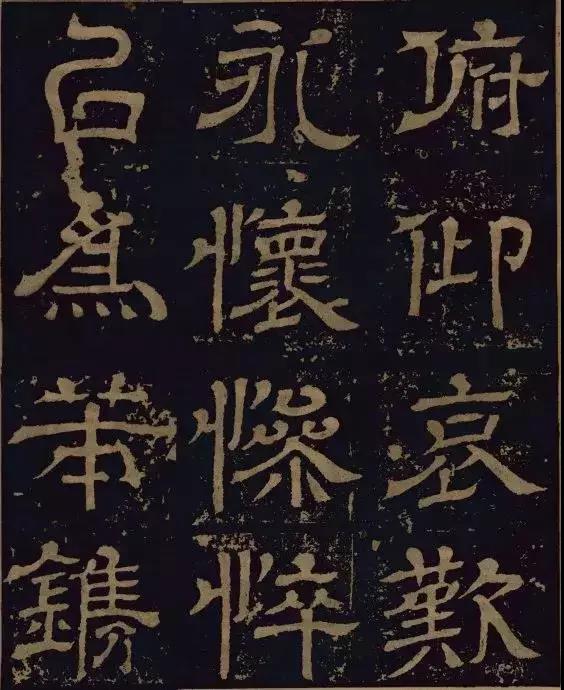 俯仰哀歎
永懷慘悴
㠯為鐫